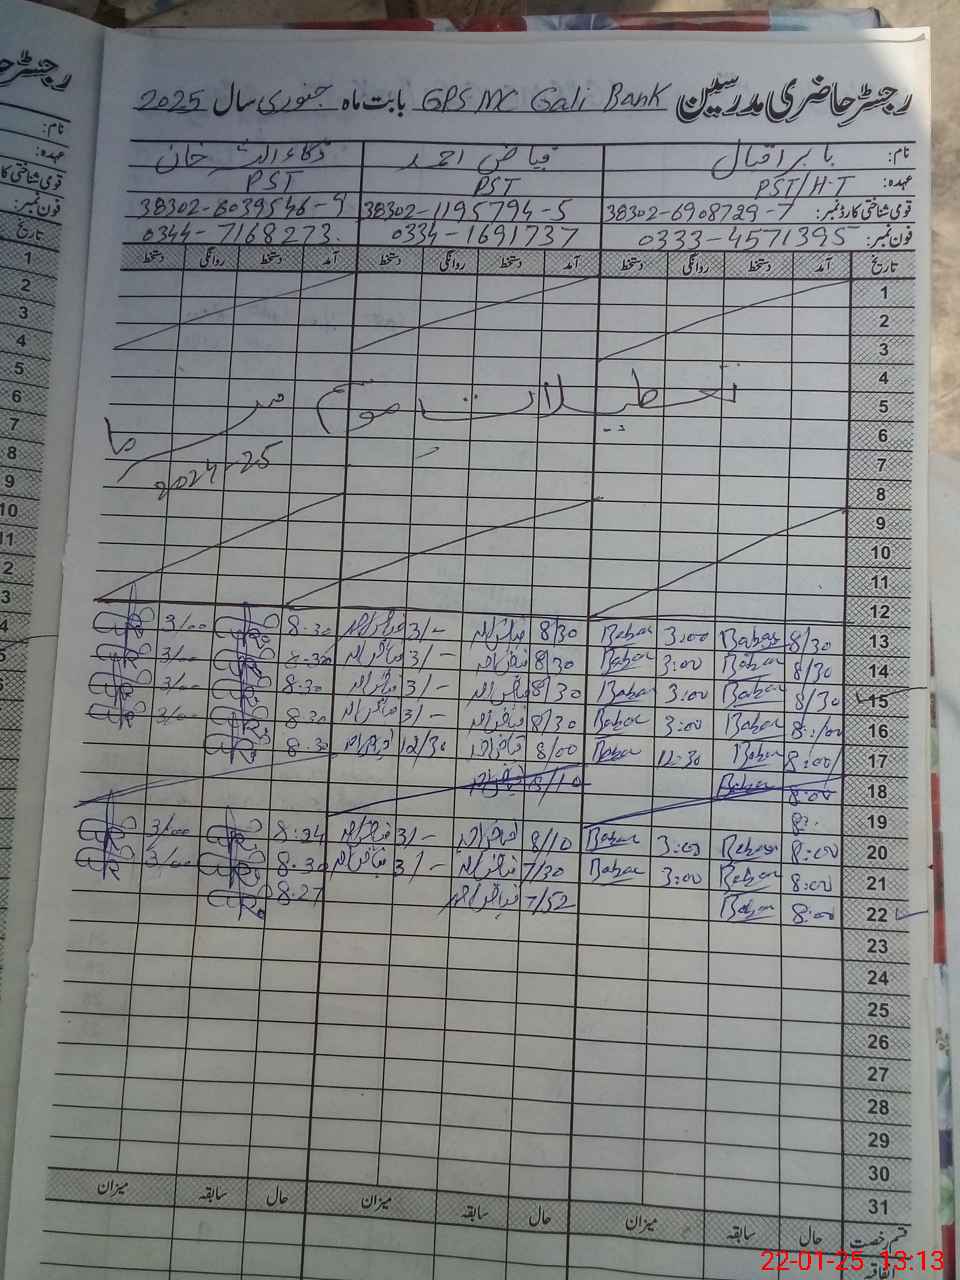 رجسٹر حاضری مدرسین GPS MC Gali Bank بابت ماہ جنوری سال 2025
نام: بابر اقبال فیاض احمد ذکاءاللہ خان
عہدہ: PST/H.T PST PST
قومی شناختی کارڈ نمبر: 38302-6908729-7 38302-1195794-5 38302-6039546-9
فون نمبر: 0333-4571395 0334-1691737 0344-7168273
تاریخ آمد دستخط روانگی دستخط آمد دستخط روانگی دستخط آمد دستخط روانگی دستخط
1
2
3
4
تعطیلات موسم سرما
5
6
7
2024-25
8
9
10
11
12
13 8/30 Babar 3:00 Babar 8/30 3/- 8:30 3/00
14 8/30 Babar 3:00 Babar 8/30 3/- 8:30 3/00
15 8/30 Babar 3:00 Babar 8/30 3/- 8:30 3/00
16 8:00 Babar 3:00 Babar 8/30 3/- 8:30 3/00
17 8:00 Babar 12:30 Babar 8/00 12/30 8:30
18 8:00 Babar 8/10
19 8:
20 8:00 Babar 3:00 Babar 8/10 3/- 8:24 3/00
21 8:00 Babar 3:00 Babar 7/30 3/- 8:30 3/00
22 8:00 Babar 7/52 8:27
23
24
25
26
27
28
29
30
31
قسم رخصت حال سابقہ میزان حال سابقہ میزان حال سابقہ میزان
اتفاقیہ
22-01-25 13:13
رجسٹر حا
نام:
عہدہ:
قومی شناختی کا
فون نمبر:
تاریخ
1
2
3
4
5
6
7
8
9
10
11